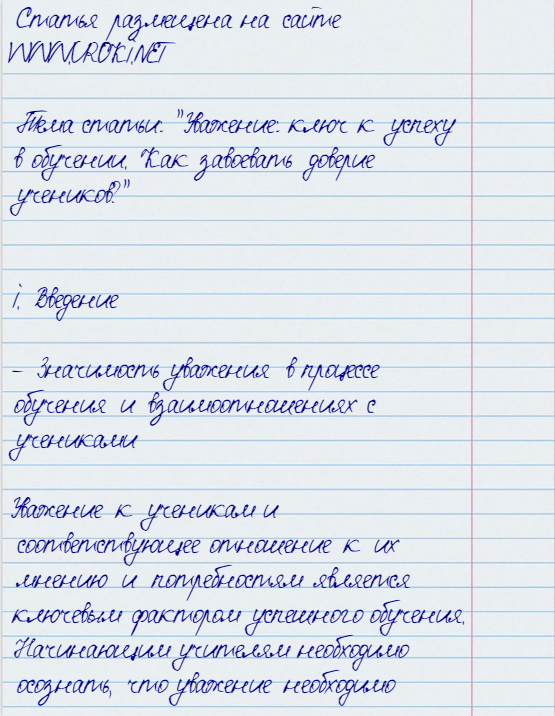 Статья размещена на сайте
WWW.UROKI.NET
Тема статьи: "Уважение: ключ к успеху
в обучении. Как завоевать доверие
учеников?"
i. Введение
- Значимость уважения в процессе
обучения и взаимоотношениях с
учениками
Уважение к ученикам и
соответствующее отношение к их
мнению и потребностям является
ключевым фактором успешного обучения.
Начинающим учителям необходимо
осознать, что уважение необходимо